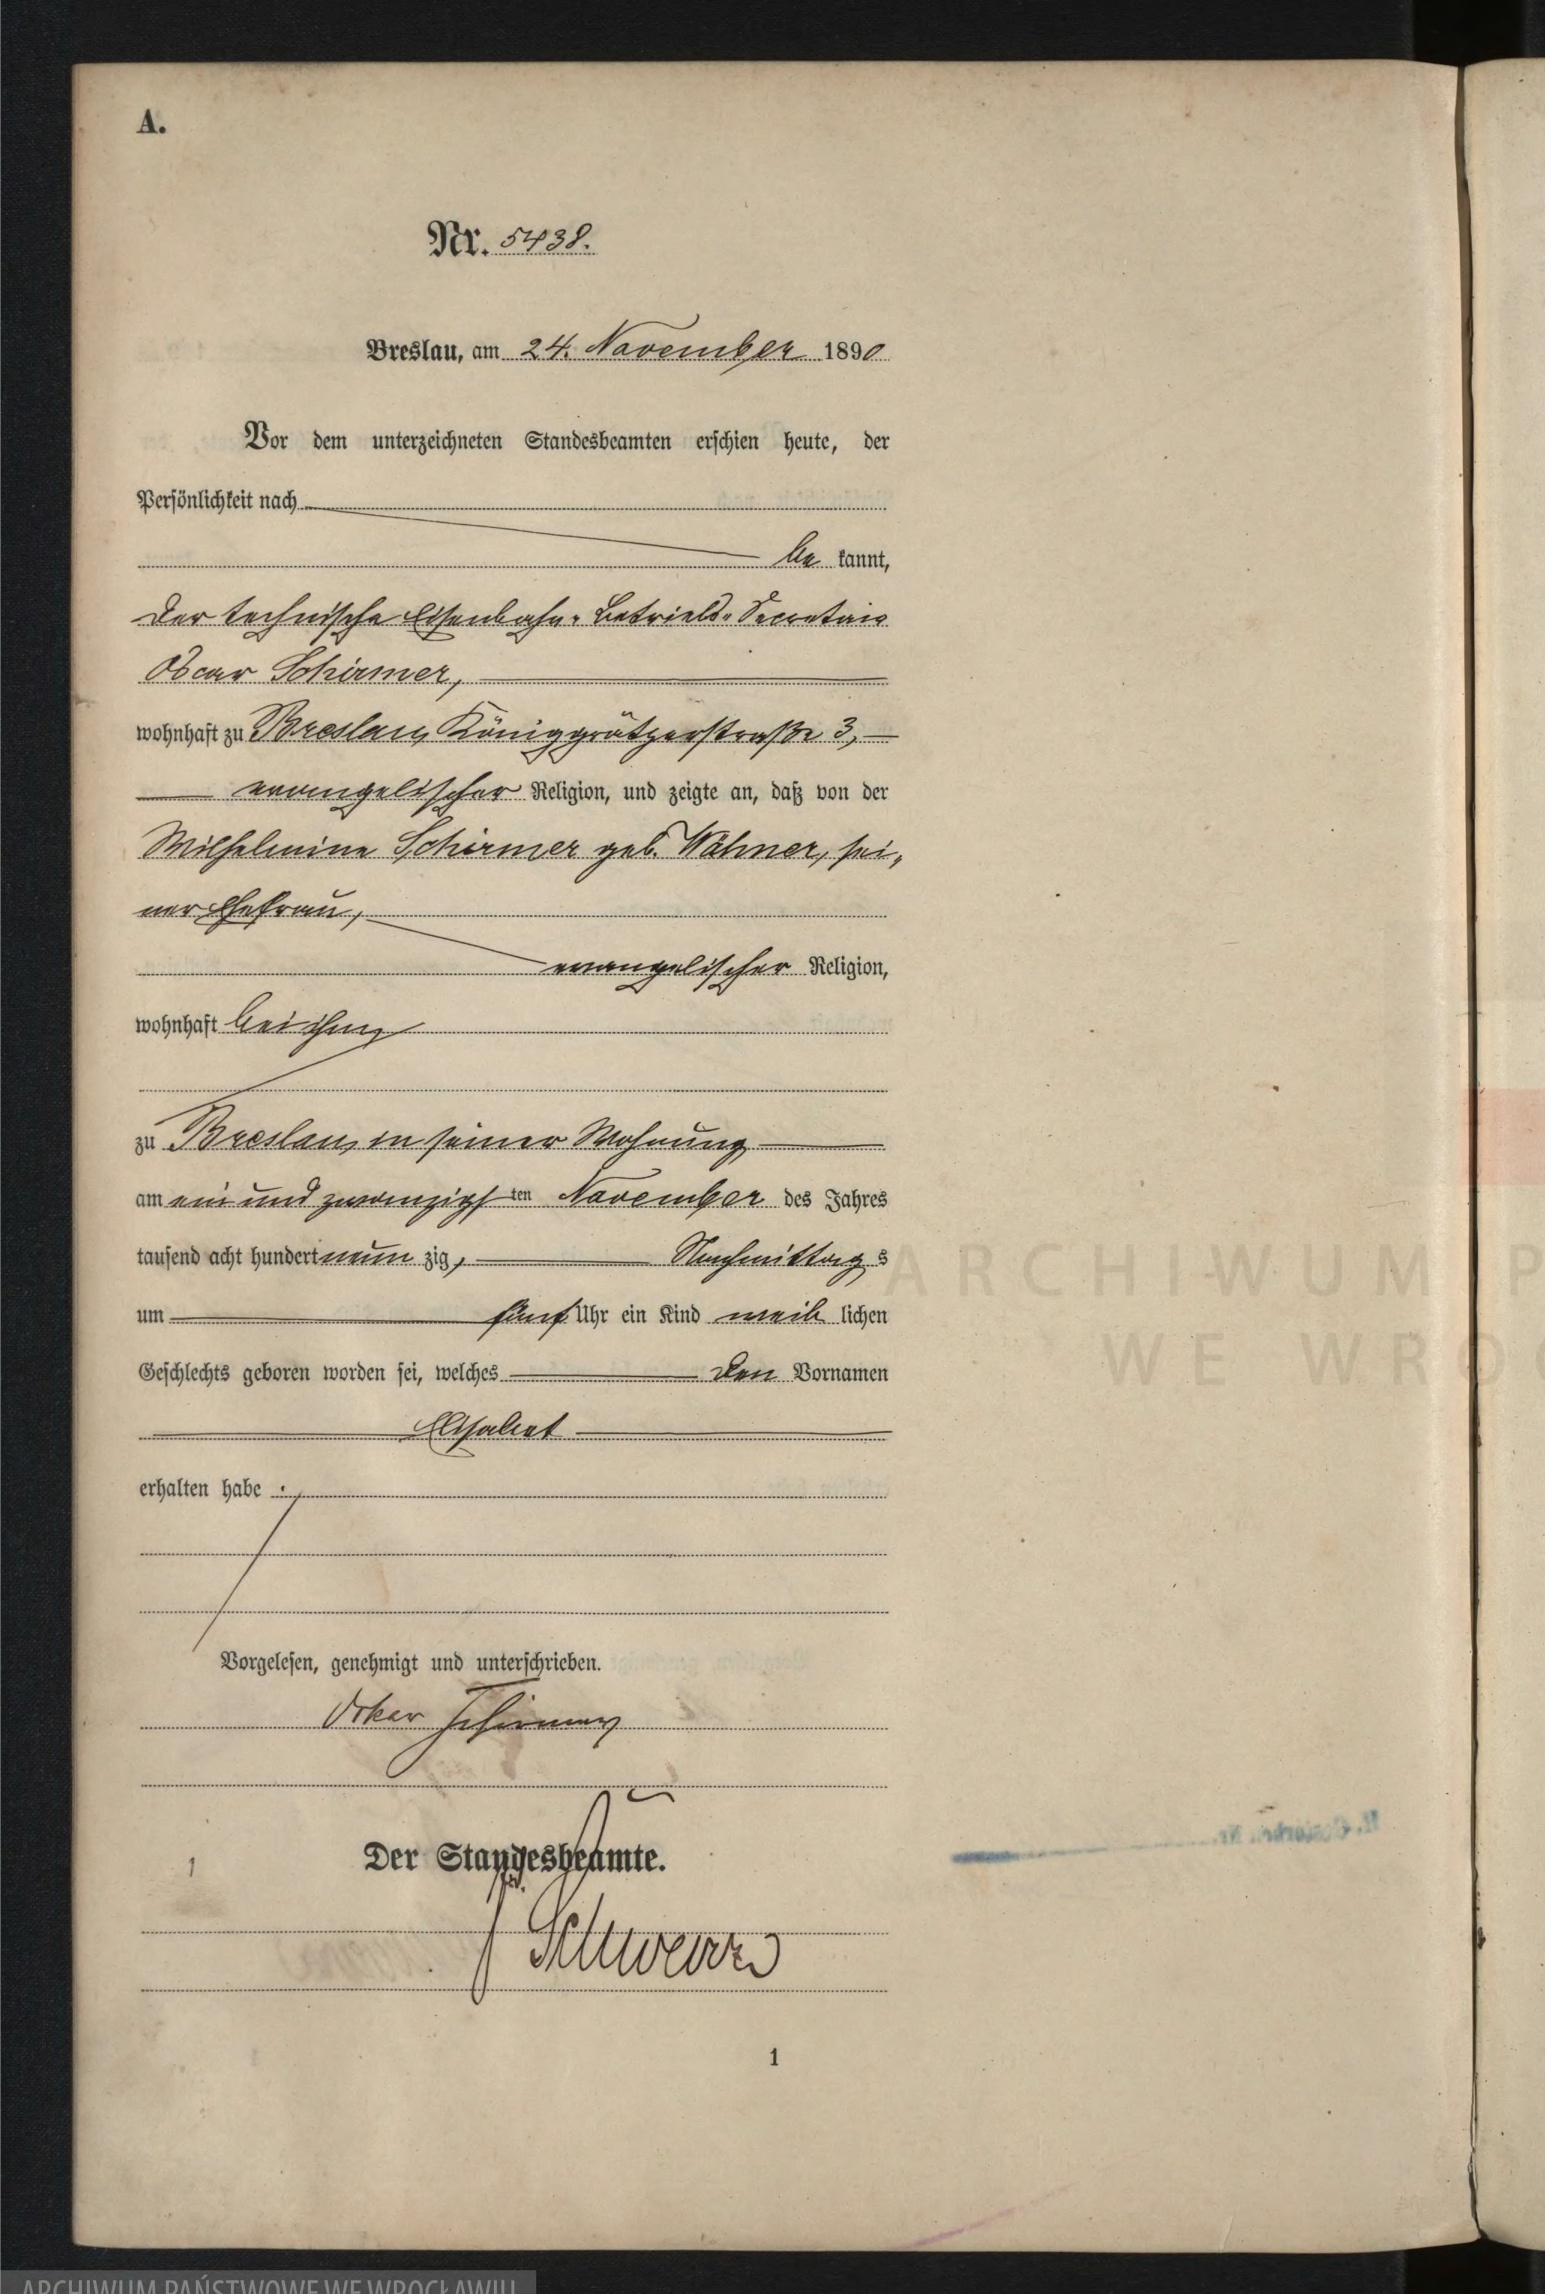 A.
Nr. 5438.
Breslau, am 24. November 1890
Vor dem unterzeichneten Standesbeamten erschien heute, der
Persönlichkeit nach
be kannt,
der technische Eisenbahn-Betriebs-Secretair
Oscar Schirmer,
wohnhaft zu Breslau, Königgrätzerstraße 3,
evangelischer Religion, und zeigte an, daß von der
Wilhelmine Schirmer geb. Wähner, sei-
ner Ehefrau,
evangelischer Religion,
wohnhaft bei ihm
zu Breslau, in seiner Wohnung
am ein und zwanzigsten November des Jahres
tausend acht hundert neun zig, Nachmittags
um fünf Uhr ein Kind weib lichen
Geschlechts geboren worden sei, welches den Vornamen
Elisabet
erhalten habe.
Vorgelesen, genehmigt und unterschrieben.
Oskar Schirmer
Der Standesbeamte.
1
1
ARCHIWUM P
WE WRO
ARCHIWUM PAŃSTWOWE WE WROCŁAWIU